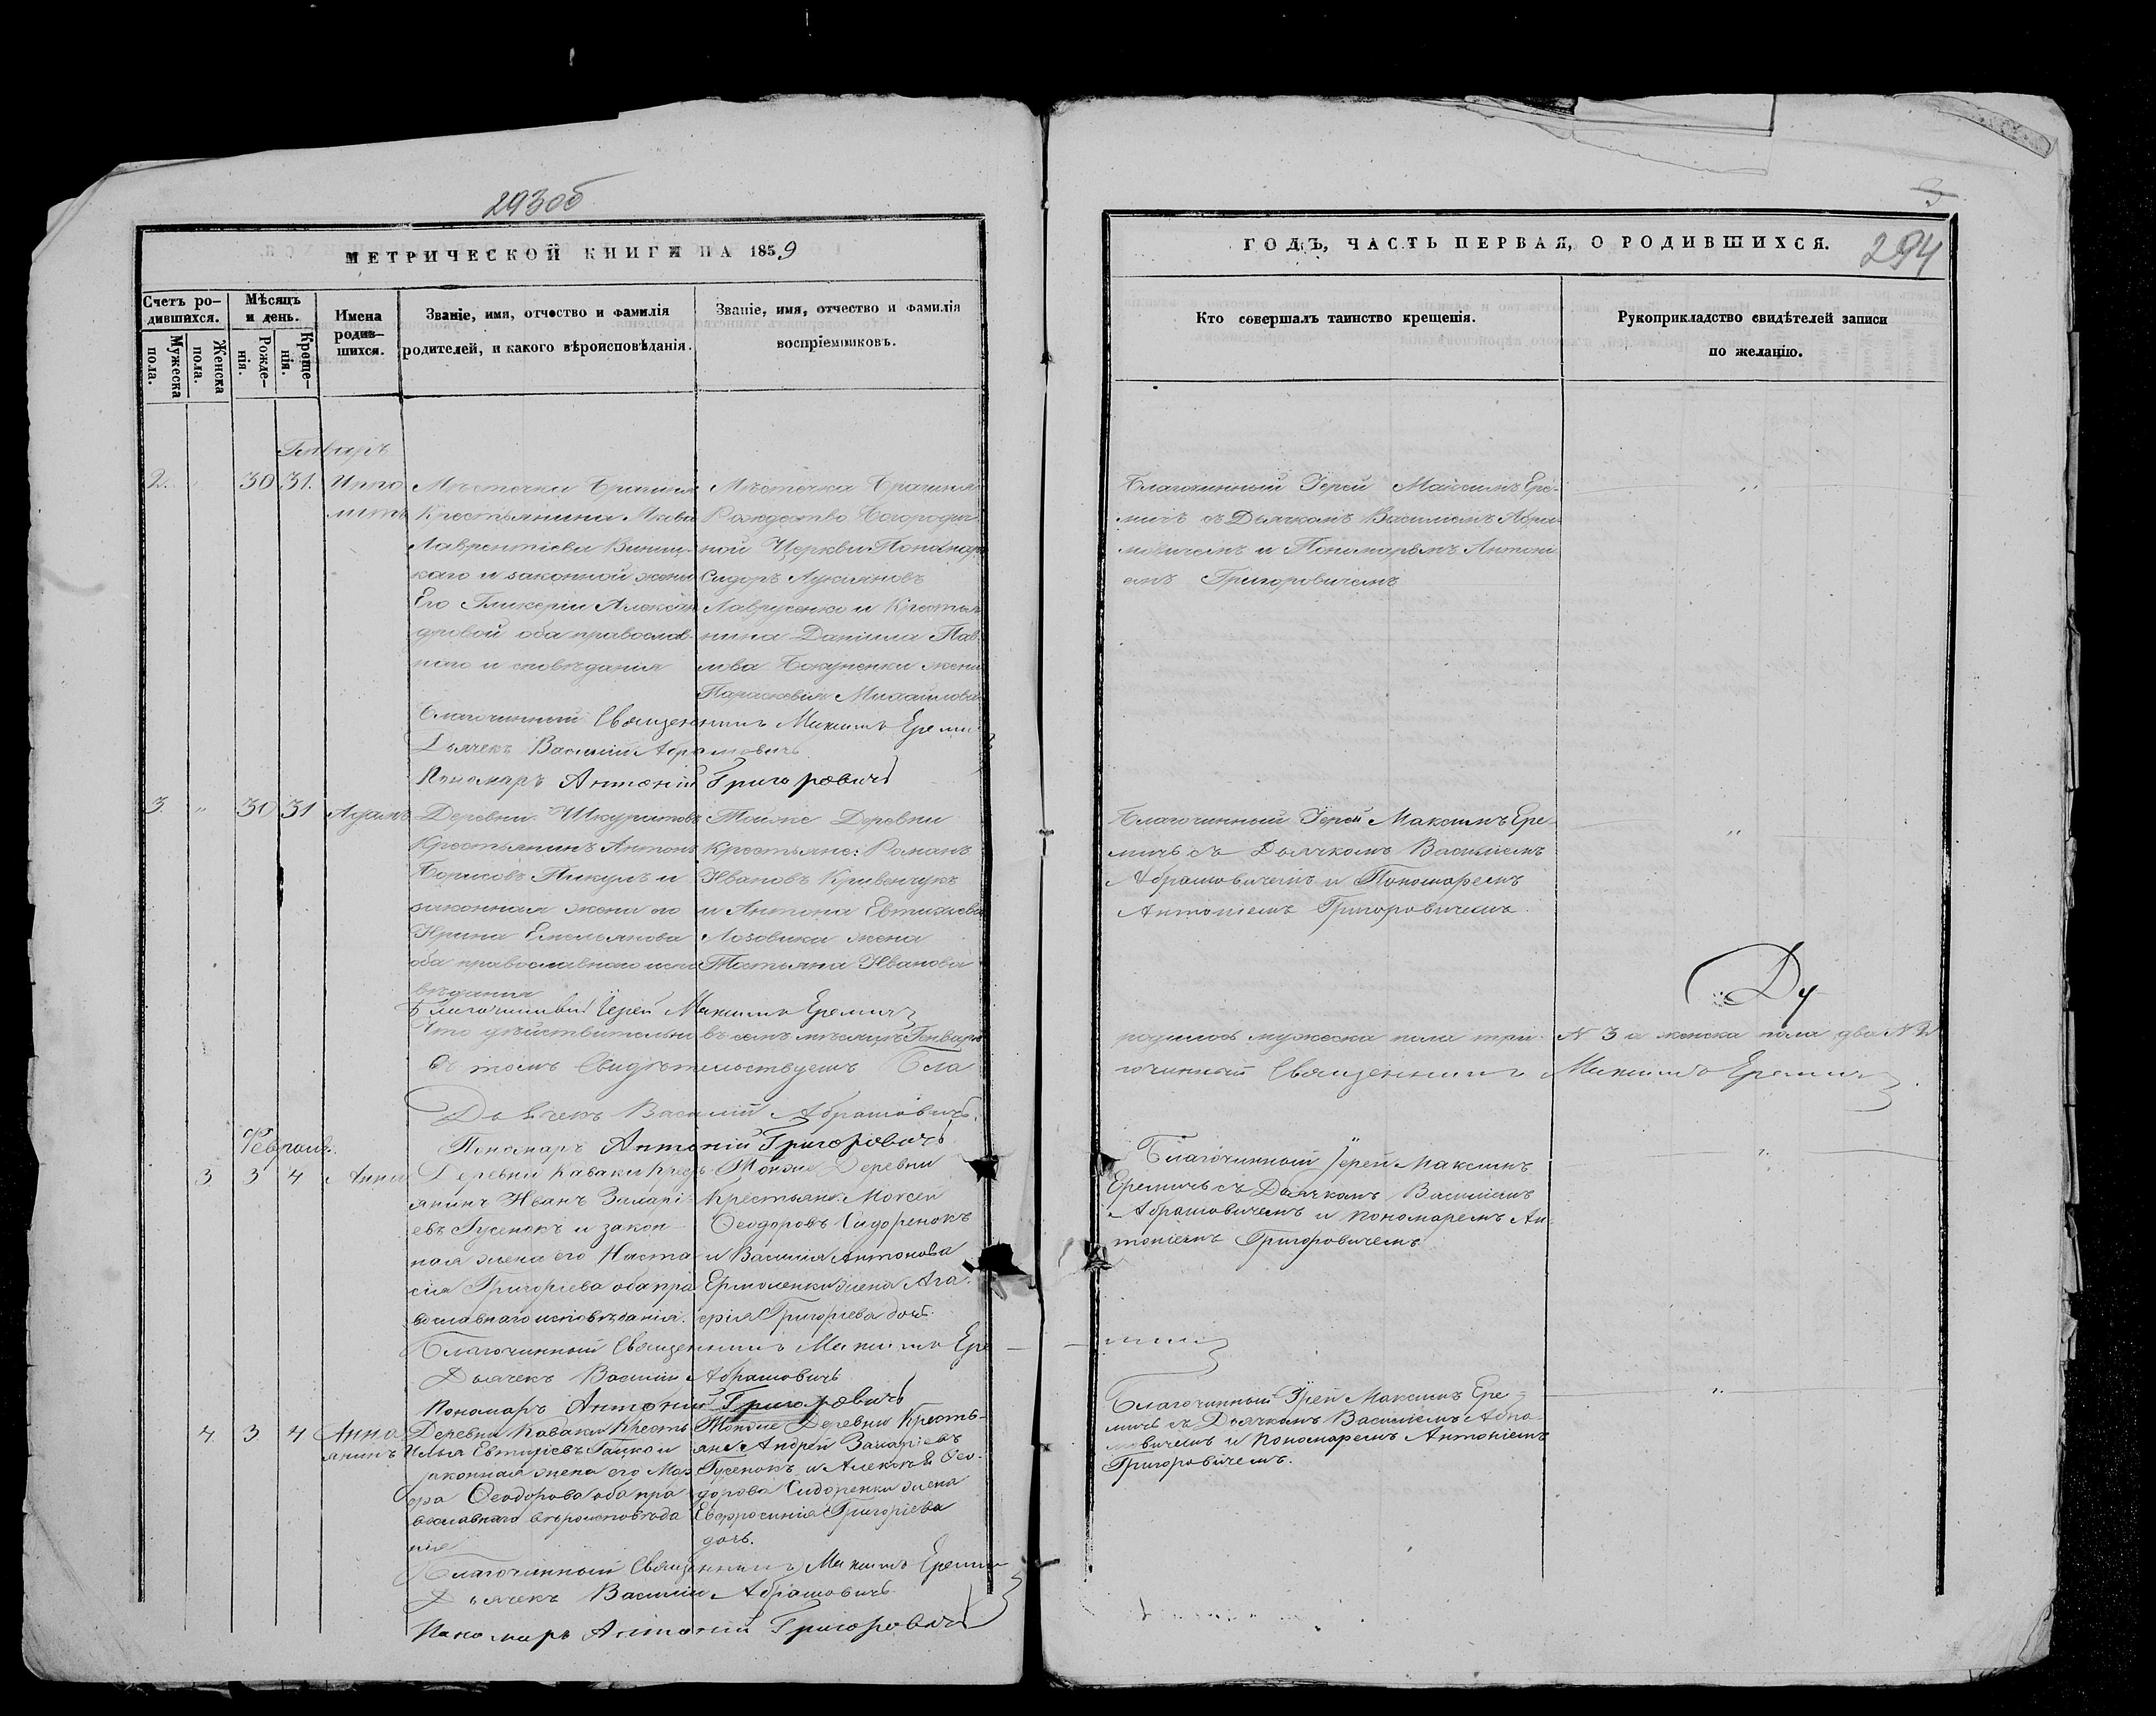 293об
МЕТРИЧЕСКОЙ КНИГИ НА 1859
Счетъ ро-
дившихся.
Мужеска
пола.
Женска
пола.
Мѣсяцъ
и день.
Рожде-
нія.
Креще-
нія.
Имена
родив-
шихся.
Званіе, имя, отчество и фамилія
родителей, и какого вѣроисповѣданія.
Званіе, имя, отчество и фамилія
воспріемниковъ.
Генваръ
2. 30 31. Иппо
литъ
Мѣстечка Брагиня
Крестьянина Якова
Лаврентіева
каго и законной жены
Его Гликеріи Алексан
дровой оба православ-
наго и сповѣданія
Мѣстечка Брагиня
Рождество Богородич
ной Церкви Пономарь
Сидоръ Лукіяновъ
Лаврусенко и Крестья
нина Даніила Пав
лова Бокуненки жена
Параскевія Михайлова
Благочинный Священникъ Максимъ Ереми
Дьячекъ Василій Абрамовичъ
Пономаръ Антоній Григоровичъ
3. " 30 31 Адамъ
Деревни Шкуратовъ
Крестьянинъ Антонъ
Борисовъ Пикулъ и
законная жена его
Ирина Емельянова
оба православнаго испо
вѣданія
Тойже Деревни
Крестьяне: Романъ
Ивановъ Кривенчукъ
и Антона Евтихіева
Лозовика жена
Татьяна Иванова
Благочинный Іерей Максимъ Еремичъ
Что дѣйствительно въ семъ мѣсяцѣ Генварѣ
въ томъ Свидѣтельствуемъ Бла
Дьячекъ Василій Абрамовичъ.
Пономаръ Антоній Григоровичъ
Февраль.
3 3 4 Анна
Деревни Каваки Крес
янинъ Иванъ Захарі
евъ Гусенокъ и закон-
ная жена его Наста
сія Григоріева оба пра
вославнаго исповѣданія.
Тойже Деревни
Крестьяне Моисей
Ѳеодоровъ Сидоренокъ
и Василія Антонова
Ермоленки жена Ага
Григоріева дочь.
Благочинный Священникъ Максимъ Ере
Дьячекъ Василій Абрамовичъ
Пономаръ Антоній Григоровичъ
4 3 4 Анна
Деревни Каваки Кресть
янинъ Илья Евтихіевъ и
законная жена его Мав
ра Ѳеодорова оба пра
вославнаго вѣроисповѣда
нія
Тойже Деревни Кресть-
яне Андрей Захаріевъ
Гусенокъ и Алексѣя Ѳео-
дорова Сидоренки жена
Евфросинія Григоріева
дочь.
Благочинный Священникъ Максимъ Еремичъ
Дьячекъ Василій Абрамовичъ
Пономаръ Антоній Григоровичъ
3
ГОДЪ, ЧАСТЬ ПЕРВАЯ, О РОДИВШИХСЯ.
294
Кто совершалъ таинство крещенія.
Рукоприкладство свидѣтелей записи
по желанію.
Благочинный Іерей Максимъ Ере-
мичъ съ Дьячкомъ Василіемъ Абра
мовичемъ и Пономаремъ Антоні
емъ Григоровичемъ
"
Благочинный Іерей Максимъ Ере-
мичъ съ Дьячкомъ Василіемъ
Абрамовичемъ и Пономаремъ
Антоніемъ Григоровичемъ.
"
Ду
родилось мужеска пола три N 3 а женска пола два N 2
гочинный Священникъ Максимъ Еремичъ
Благочинный Іерей Максимъ
Еремичъ съ Дьячкомъ Василіемъ
Абрамовичемъ и Пономаремъ Ан-
тоніемъ Григоровичемъ
"
мичъ
Благочинный Іерей Максимъ Ере-
мичъ съ Дьячкомъ Василіемъ Абра-
мовичемъ и Пономаремъ Антоніемъ
Григоровичемъ.
"